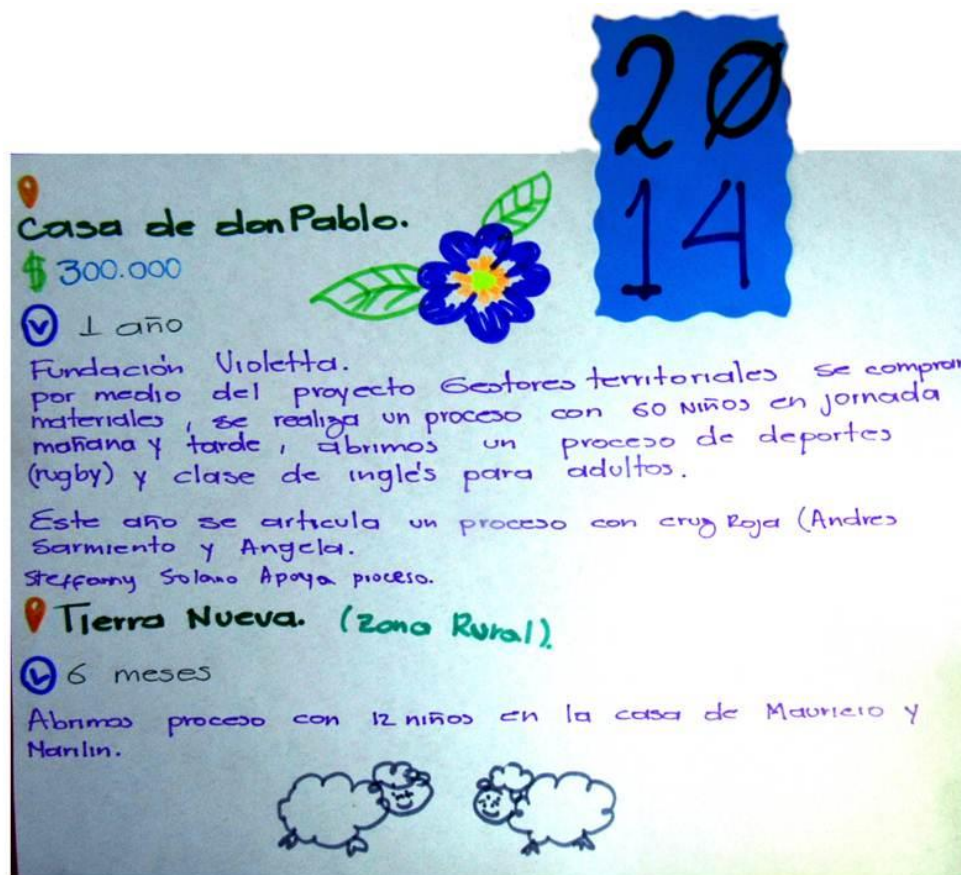 20
14
Casa de don Pablo.
$ 300.000
1 año
Fundación Violetta.
por medio del proyecto Gestores territoriales se compran
materiales, se realiza un proceso con 60 Niños en jornada
mañana y tarde, abrimos un proceso de deportes
(rugby) y clase de inglés para adultos.
Este año se articula un proceso con cruz Roja (Andres
Sarmiento y Angela.
Steffanny Solano Apoya proceso.
Tierra Nueva. (Zona Rural).
6 meses
Abrimos proceso con 12 niños en la casa de Mauricio y
Marilin.